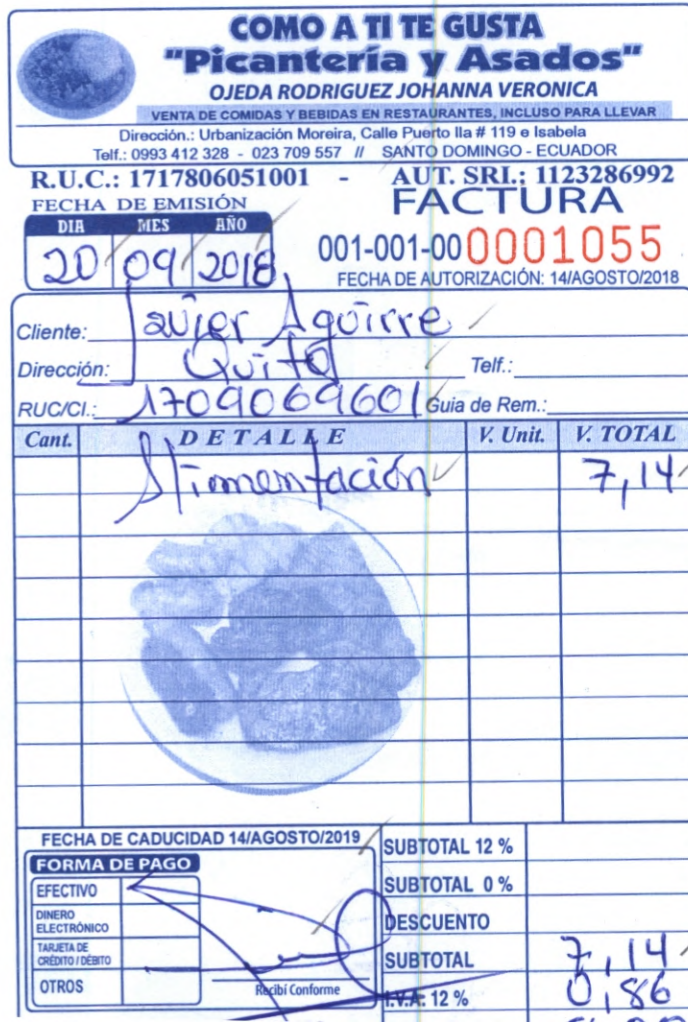 COMO A TI TE GUSTA
"Picantería y Asados"
OJEDA RODRIGUEZ JOHANNA VERONICA
VENTA DE COMIDAS Y BEBIDAS EN RESTAURANTES, INCLUSO PARA LLEVAR
Dirección.: Urbanización Moreira, Calle Puerto Ila # 119 e Isabela
Telf.: 0993 412 328 - 023 709 557 // SANTO DOMINGO - ECUADOR
R.U.C.: 1717806051001 - AUT. SRI.: 1123286992
FECHA DE EMISIÓN FACTURA
DIA MES AÑO
20 09 2018
001-001-00 0001055
FECHA DE AUTORIZACIÓN: 14/AGOSTO/2018
Cliente: Javier Aguirre
Dirección: Quito Telf.:
RUC/CI.: 1709069601 Guia de Rem.:
Cant. DETALLE V. Unit. V. TOTAL
Alimentación 7,14
FECHA DE CADUCIDAD 14/AGOSTO/2019 SUBTOTAL 12 %
FORMA DE PAGO
EFECTIVO SUBTOTAL 0 %
DINERO ELECTRÓNICO DESCUENTO
TARJETA DE CRÉDITO / DÉBITO SUBTOTAL 7,14
OTROS Recibí Conforme I.V.A. 12 % 0,86